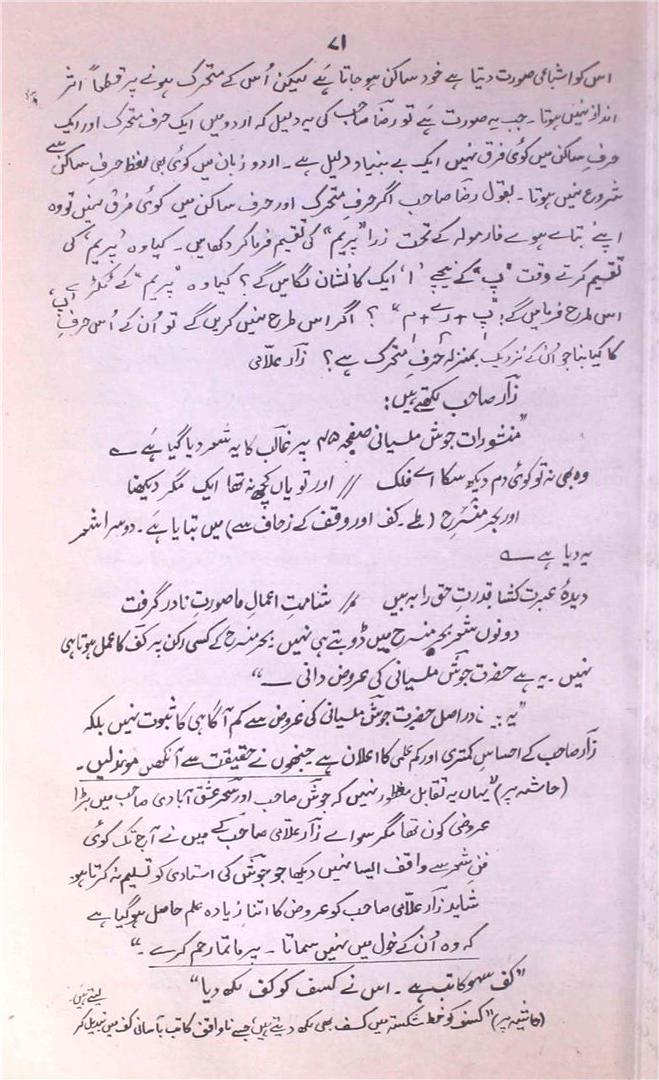 ۷۱
اس کو اشباعی صورت دیتا ہے خود ساکن ہو جاتا ہے لیکن اُس کے متحرک ہونے پر قطعاً اثر
انداز نہیں ہوتا۔ جب یہ صورت ہے تو رضا صاحب کی یہ دلیل کہ اردو میں ایک حرف متحرک اور ایک
حرفِ ساکن میں کوئی فرق نہیں ایک بے بنیاد دلیل ہے۔ اردو زبان میں کوئی بھی لفظ حرفِ ساکن سے
شروع نہیں ہوتا۔ بقول رضا صاحب اگر حرفِ متحرک اور حرف ساکن میں کوئی فرق نہیں تو وہ
اپنے بتائے ہوئے فارمولہ کے تحت زرا "پریم" کی تقیم فرما کر دکھائیں۔ کیا وہ 'پریم' کی
تقیم کرتے وقت "پ" کے نیچے '۱' ایک کا نشان لگائیں گے؟ کیا وہ "پریم" کے ٹکڑے
اس طرح فرمائیں گے: "پ + رے + م" ؟ اگر اس طرح نہیں کریں گے تو اُن کے اُس حرفِ 'پ'
کا کیا بنا جو اُن کے نزدیک بمنزلہ حرفِ متحرک ہے؟ زآر علامی
زآر صاحب لکھتے ہیں:
"منشورات جوش ملسیانی صفحہ ۴۵ پر غالب کا یہ شعر دیا گیا ہے ؎
وہ بھی نہ تو کوئی دم دیکھ سکا اے فلک // اور تو یاں کچھ نہ تھا ایک مگر دیکھنا
اور بحر منسرح (طے۔ کف اور وقف کے زحاف سے) میں بتایا ہے۔ دوسرا شعر
یہ دیا ہے ؎
دیدۂ عبرت کشا قدرتِ حق را ببیں // شامتِ اعمالِ ما صورتِ نادر گرفت
دونوں شعر بحر منسرح میں ڈوبتے ہی نہیں۔ بحر منسرح کے کسی رکن پہ کف کا عمل ہوتا ہی
نہیں۔ یہ ہے حضرت جوش ملسیانی کی عروض دانی ــ"
"یہ دراصل حضرت جوش ملسیانی کی عروض سے کم آگاہی کا ثبوت نہیں بلکہ
زآر صاحب کے احساسِ کمتری اور کم علمی کا اعلان ہے جنھوں نے حقیقت سے آنکھیں موند لیں۔
(حاشیہ پر) "یہاں یہ تقابل مطلوب نہیں کہ جوش صاحب اور سحر عشق آبادی صاحب میں بڑا
عروضی کون تھا مگر سوائے زآر علامی صاحب کے میں نے آج تک کوئی
فنِ شعر سے واقف ایسا نہیں دیکھا جو جوش کی استادی کو تسلیم نہ کرتا ہو۔
شاید زآر علامی صاحب کو عروض کا اتنا زیادہ علم حاصل ہو گیا ہے
کہ وہ اُن کے خول میں نہیں سماتا۔ پرماتما رحم کرے۔"
"کف سہوِ کاتب ہے۔ اس نے کسف کو کف لکھ دیا"
(حاشیہ پر) "کسف کو خطِ شکستہ میں کسف بھی لکھ دیتے ہیں جسے ناواقف کاتب بآسانی کف میں تبدیل کر
لیتے ہیں۔